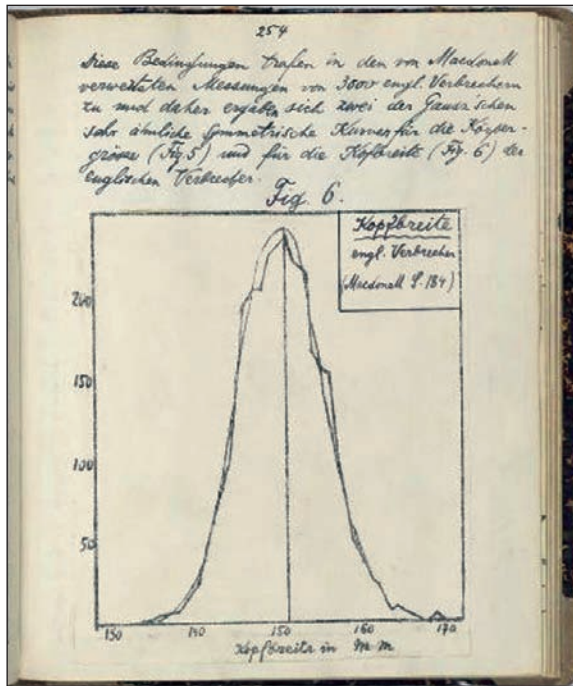 254
Diese Bedingungen trafen in den von Macdonell
verwerteten Messungen von 3000 engl. Verbrechern
zu und daher ergaben sich zwei der Gauss'schen
sehr ähnliche symmetrische Kurven für die Körper-
grösse (Fig. 5) und für die Kopfbreite (Fig. 6) der
englischen Verbrecher.
Fig. 6.
Kopfbreite
engl. Verbrecher
(Macdonell S. 184)
200
150
100
50
130 140 150 160 170
Kopfbreite in mm